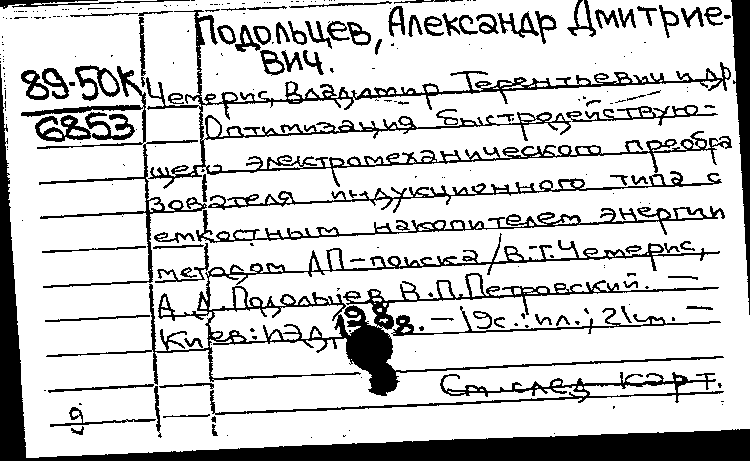 Подольцев, Александр Дмитрие-
вич.
89-50К
6853
Чемерис, Владимир Терентьевич и др.
Оптимизация быстродействую-
щего электромеханического преобра
зователя индукционного типа с
емкостным накопителем энергии
методом ЛП-поиска / В.Т. Чемерис,
А.Д. Подольцев, В.П. Петровский. —
Киев: ИЭД, 1988. — 19с.: ил.; 21см. —
См. след. карт.